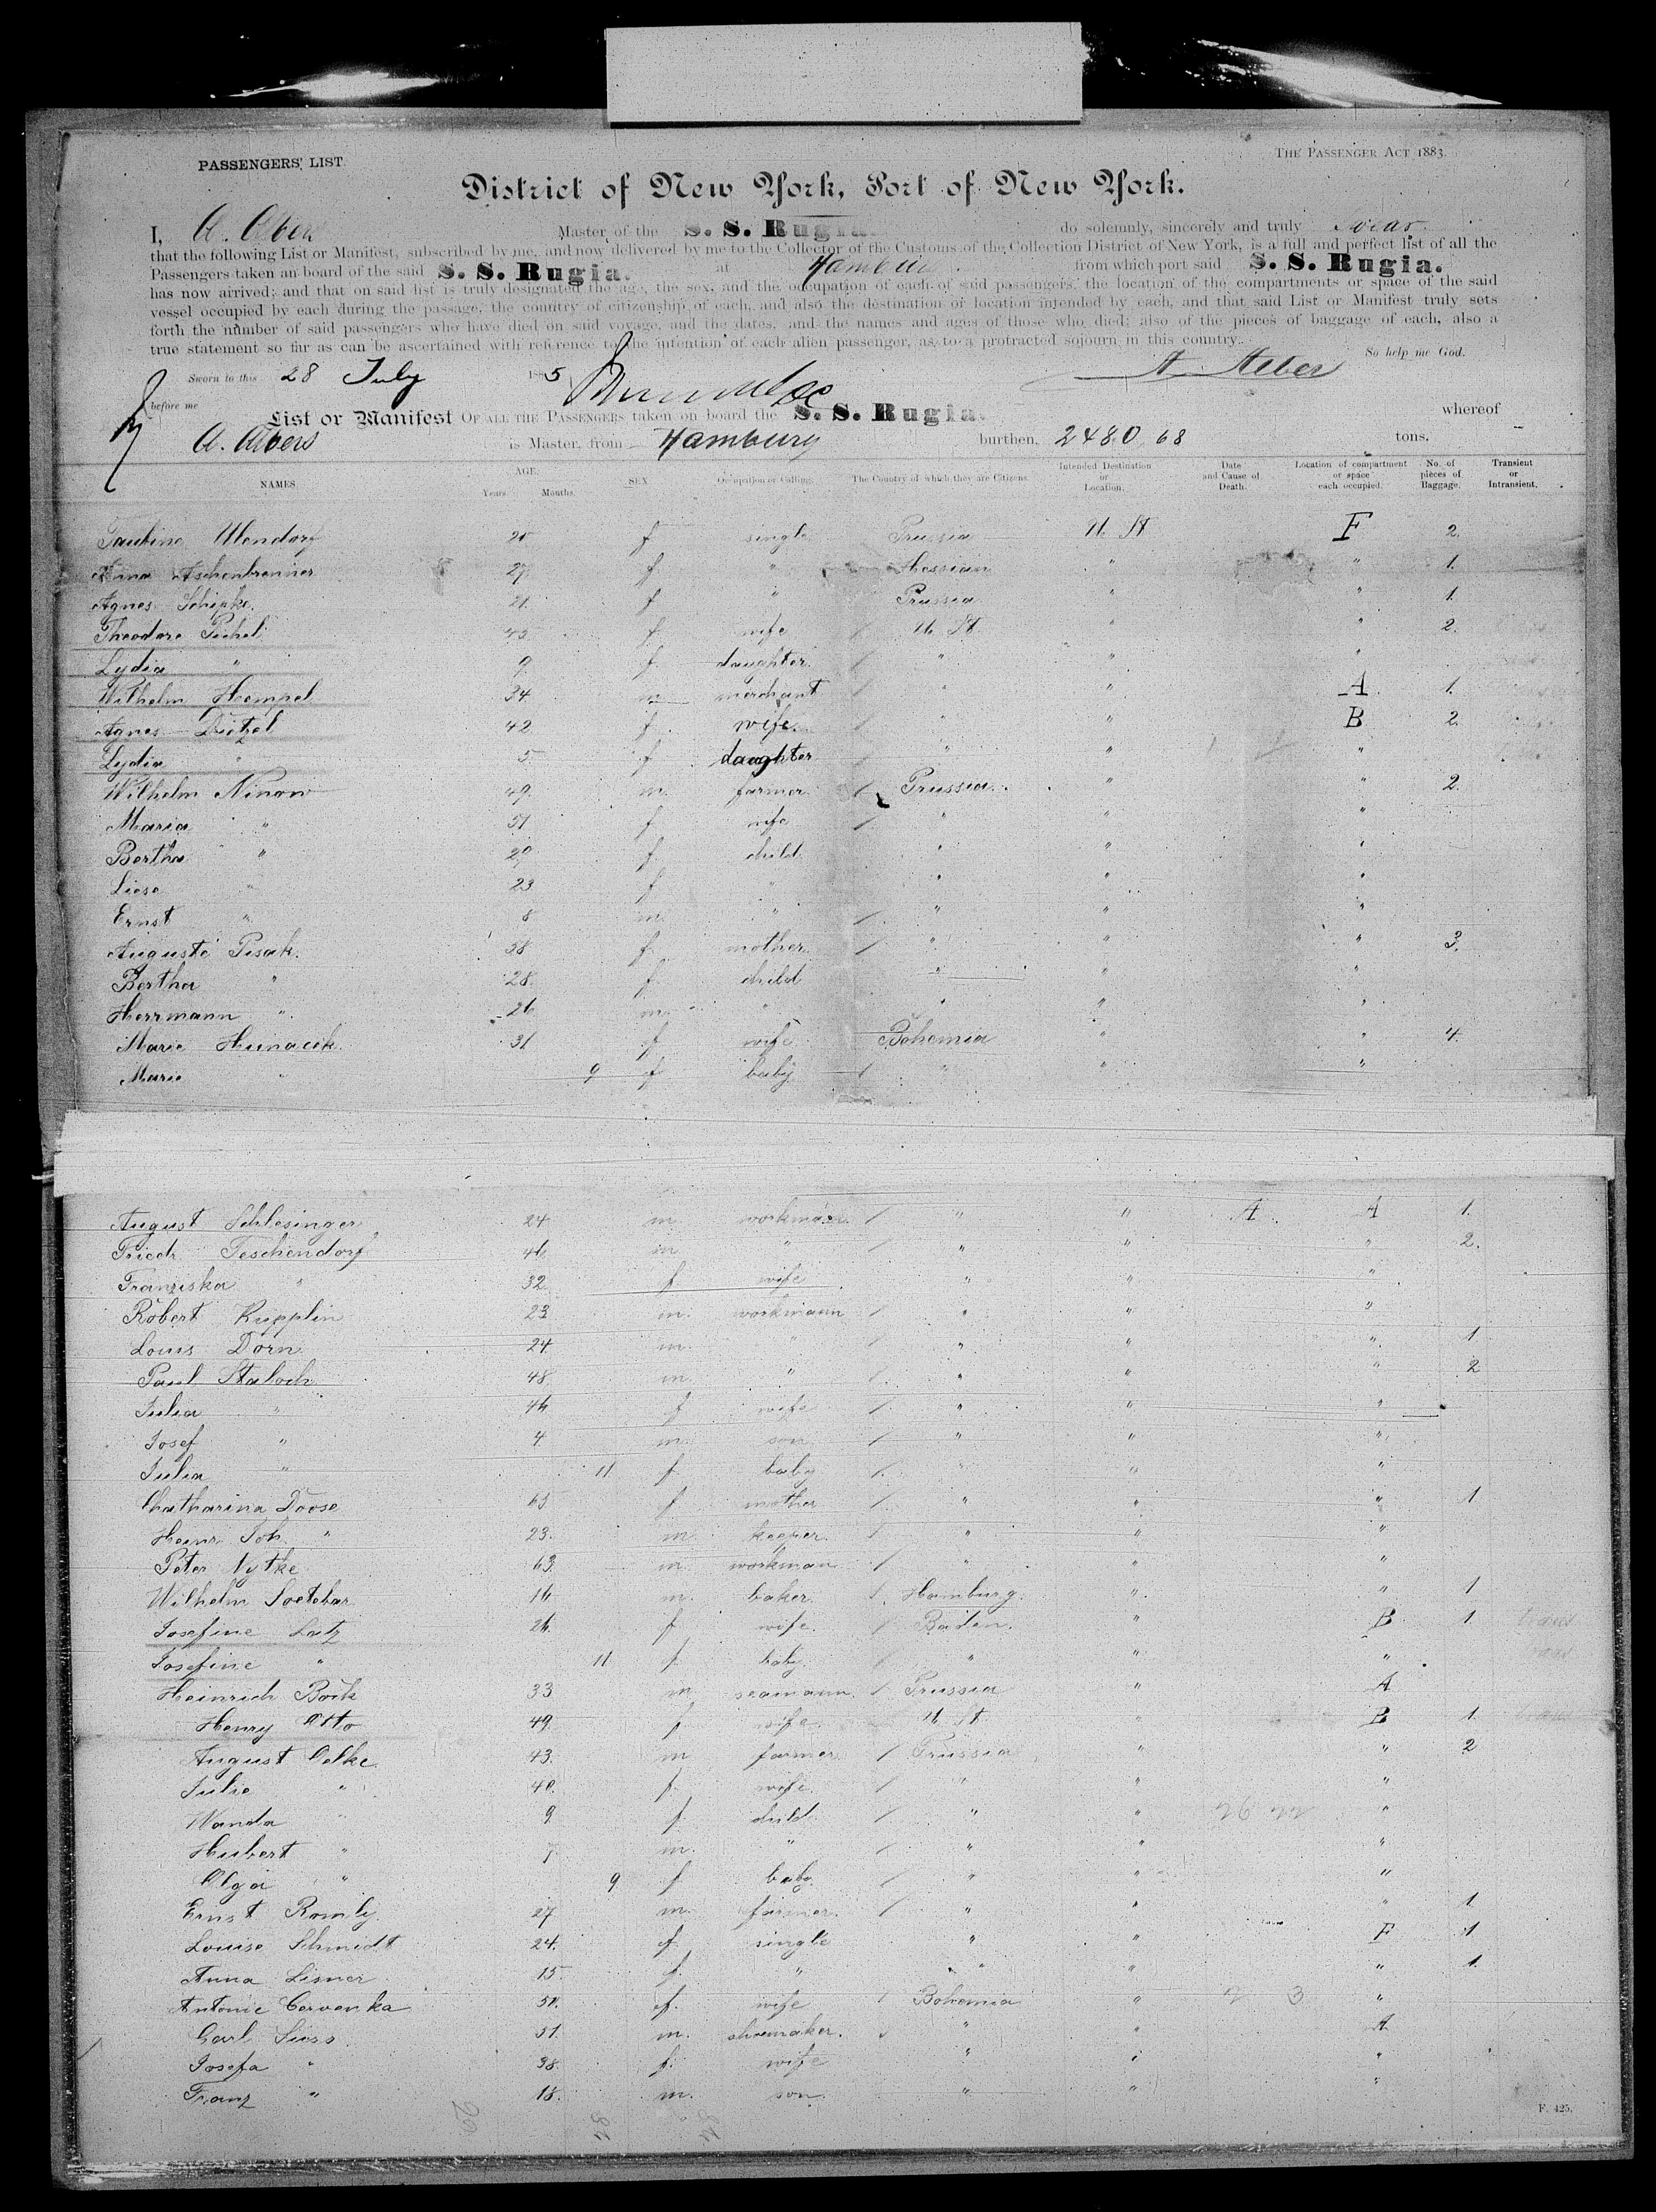 PASSENGERS' LIST.
THE PASSENGER ACT 1883.
District of New York, Port of New York.
I, A. Albers Master of the S. S. Rugia. do solemnly, sincerely and truly swear
that the following List or Manifest, subscribed by me, and now delivered by me to the Collector of the Customs of the Collection District of New York, is a full and perfect list of all the
Passengers taken on board of the said S. S. Rugia. at Hamburg from which port said S. S. Rugia.
has now arrived; and that on said list is truly designated the age, the sex, and the occupation of each of said passengers, the location of the compartments or space of the said
vessel occupied by each during the passage, the country of citizenship of each, and also the destination or location intended by each, and that said List or Manifest truly sets
forth the number of said passengers who have died on said voyage, and the dates, and the names and ages of those who died; also of the pieces of baggage of each, also a
true statement so far as can be ascertained with reference to the intention of each alien passenger, as to a protracted sojourn in this country.
So help me God.
Sworn to this 28 July 1885 A. Albers
before me
List or Manifest OF ALL THE PASSENGERS taken on board the S. S. Rugia. whereof
A. Albers is Master, from Hamburg burthen, 2480 68 tons.
NAMES AGE. Years. Months. SEX Occupation or Calling. The Country of which they are Citizens. Intended Destination or Location. Date and Cause of Death. Location of compartment or space each occupied. No. of pieces of Baggage. Transient or Intransient.
f single Prussia U. St F 2.
Anna Aschenbrenner 27 f " Hessian " " 1.
Agnes Schipke 21 f " Prussia " " 1.
Theodore Pichel 43 f wife U. St. " " 2.
Lydia " 9 f daughter " " "
Wilhelm Hempel 34 m merchant " " A 1.
Agnes Dietzel 42 f wife " " B 2.
Lydia " 5 f daughter " " "
Wilhelm Ninow 49 m farmer Prussia " " 2.
Maria " 51 f wife " " "
Bertha " 29 f child " " "
Liese " 23 f " " " "
Ernst " 8 m " " " "
Auguste Pisak 58 f mother " " " 3.
Bertha " 28 f child " " "
Herrmann " 26 m " " " "
Marie 31 f wife Bohemia " " 4.
Marie " 9 f baby " " "
August Schlesinger 24 m workman " " A A 1.
Friedr. Teschendorf 46 m " " " " 2.
Franziska " 32 f wife " " "
Robert Kupplin 23 m workmann " " "
Louis Dorn 24 m " " " " 1
Paul Staloch 48 m " " " " 2
Julia " 46 f wife " " "
Josef " 4 m son " " "
Julia " 11 f baby " " "
Chatharina Doose 65 f mother " " " 1
Heinr. Joh. " 23 m keeper " " "
Peter Nytke 63 m workman " " "
Wilhelm Soetebar 16 m baker Hamburg " " 1
Josefine Latz 26 f wife Baden " B 1
Josefine " 11 f baby " " "
Heinrich Bock 33 m seamann Prussia " A
Henry Otto 49 f wife U. St. " B 1
August Oelke 43 m farmer Prussia " " 2
Julie " 40 f wife " " "
Wanda " 9 f child " " "
Hubert " 7 m " " " "
Olga " 9 f baby " " "
Ernst Romly 27 m farmer " " " 1
Louise Schmidt 24 f single " " F 1
Anna Lisner 15 f " " " " 1
Antonie Cervenka 50 f wife Bohemia " "
Carl Suess 51 m shoemaker " " A
Josefa " 38 f wife " " "
Franz " 18 m son " " "
F. 425.